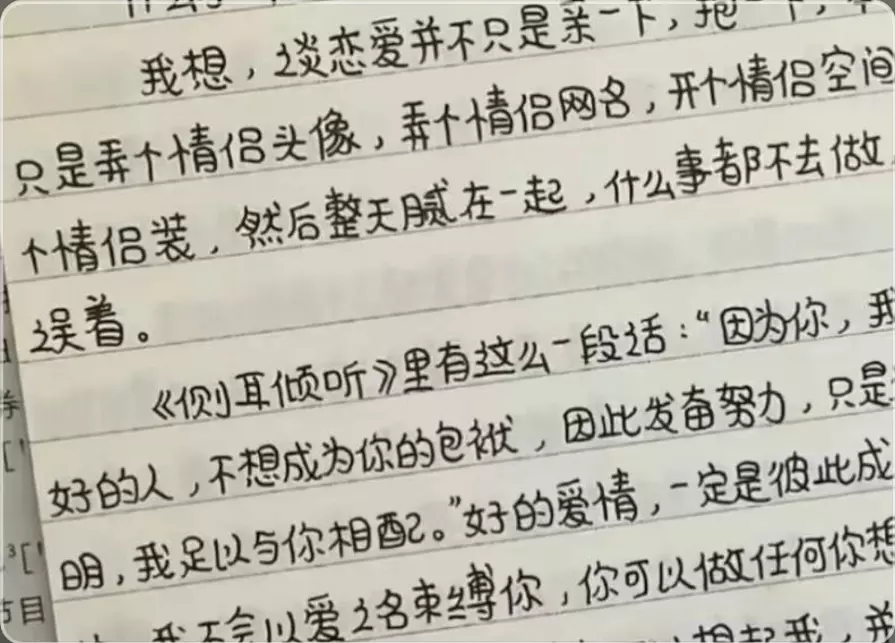 我想，谈恋爱并不只是亲一下，抱一下，
只是弄个情侣头像，弄个情侣网名，开个情侣空间
个情侣装，然后整天腻在一起，什么事都不去做
误着。
《侧耳倾听》里有这么一段话：“因为你，我
好的人，不想成为你的包袱，因此发奋努力，只是
明，我足以与你相配。”好的爱情，一定是彼此成
我不会以爱之名束缚你，你可以做任何你想
节目